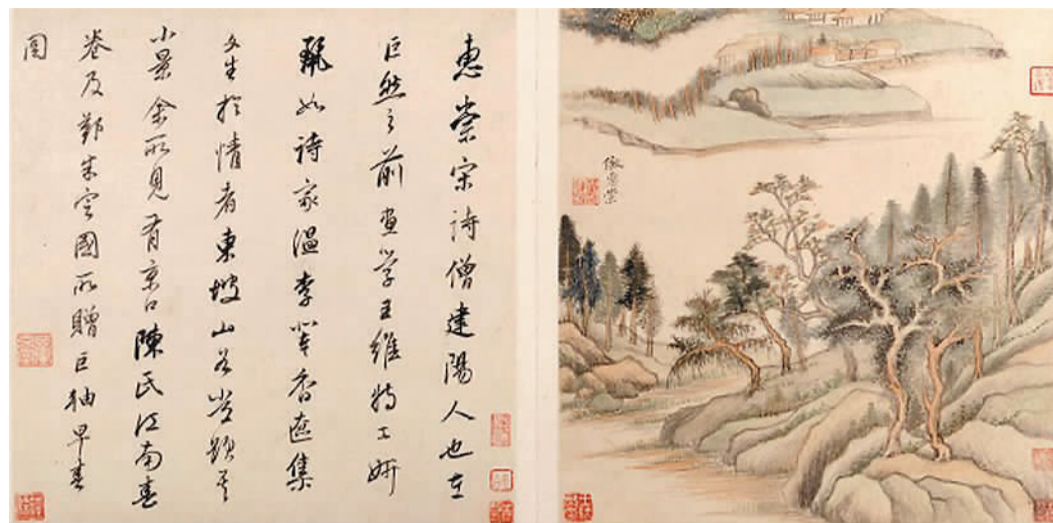 惠崇宋詩僧建陽人也在
巨然之前畫學王維特工妍
麗如詩家溫李輩香奩集
文生於情者東坡山谷嘗題其
小景余所見有京口陳氏江南春
卷及鄒朱定國所贈巨軸早春
圖
倣惠崇